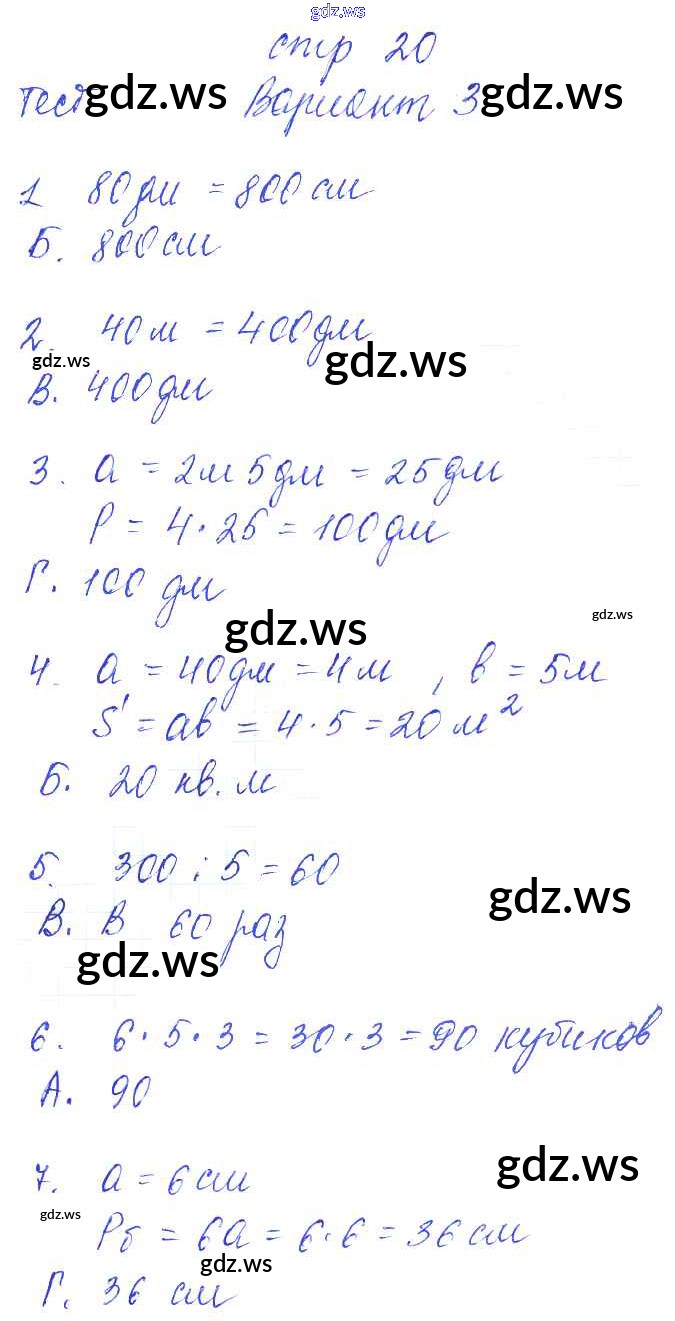 gdz.ws
стр 20
Тест gdz.ws Вариант 3 gdz.ws
1 80дм = 800 см
Б. 800 см
2. 40 м = 400 дм
gdz.ws gdz.ws
В. 400 дм
3. a = 2м 5дм = 25 дм
P = 4 · 25 = 100 дм
Г. 100 дм
gdz.ws gdz.ws
4. a = 40дм = 4м , в = 5м
S = ав = 4 · 5 = 20 м²
Б. 20 кв. м
5. 300 : 5 = 60
gdz.ws
В. В 60 раз
gdz.ws
6. 6 · 5 · 3 = 30 · 3 = 90 кубиков
А. 90
7. a = 6 см
gdz.ws
gdz.ws
P₆ = 6a = 6 · 6 = 36 см
gdz.ws
Г. 36 см